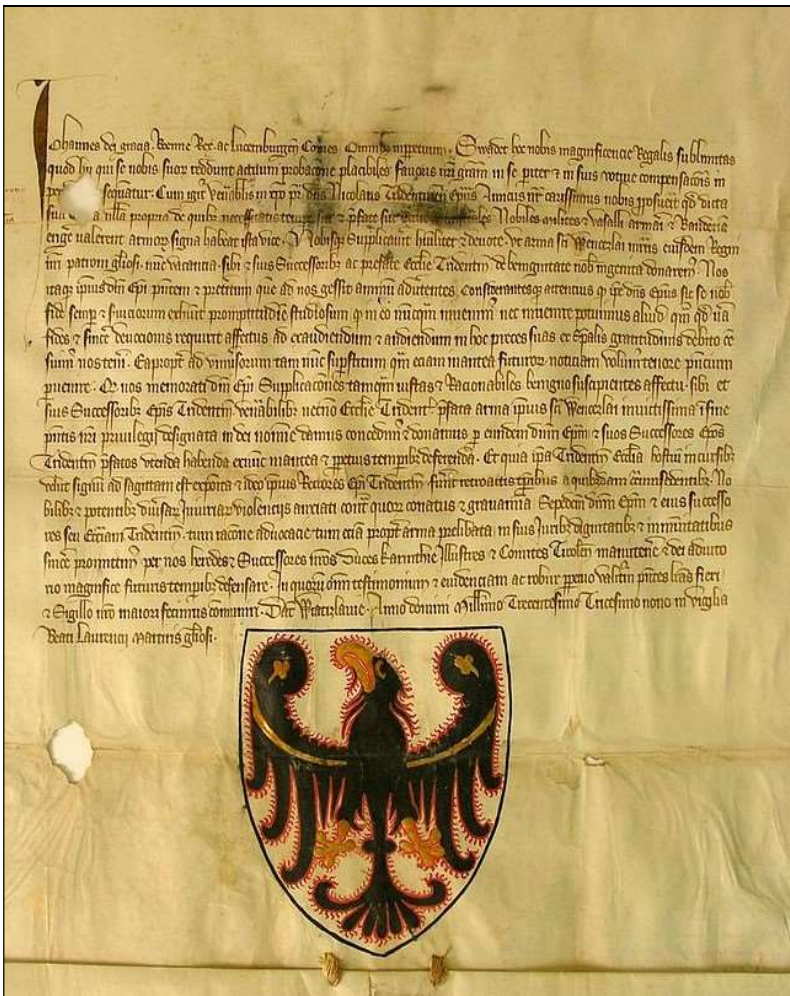 Johannes dei gracia Boemie Rex ac Lucemburgen Comes Omnibus inperpetuum Swadet hoc nobis magnificencie Regalis sublimitas
quod hii qui se nobis suor reddunt actuum probacione placibiles favoris nri gram in se pariter & in suis votive compensacois in
sequatur Cum igit venabilis in xpo pr dns Nicolaus Tridentinen Epus Amicus nr carissimus nobis proposuerit qd dicta
sua villa propria de quibz necessitatis tempe & prefate sue Nobiles milites & vasalli armari & Banderia
erige valerent armor signa habeat ista vice Nobisqz Supplicavit humilitez & devote vt arma sci Wenczlai mris eiusdem Regni
nri patroni gliosi nuc vacancia sibi & suis Successoribz ac prefate Ecclie Tridentin de benignitate nob ingenita donarem Nos
itaqz ipius dni Epi & que ad nos gessit animum advtentes Considerantesqz attencius q ipe dns Epus sic se nob
fide semp & serviciorum exhibuit promptitudine studiosum q in eo nunqm invenim nec invenire potuimus aliud qm qd via
fides & sincere devocionis requirit affectus ad exaudiendum & audiendum in hoc preces suas ex Spalis gratitudinis debito ce
sum nos teneri Eapropt ad vniversorum tam nuc supstitum qm eciam inantea futuror noticiam volum tenore pncium
pvenire Qz nos memorati dni Epi Supplicacones tamqm iustas & Racionabiles benigno suscipientes affectu sibi et
suis Successoribz Epis Tridentin venabilibz necno Ecclie Trident pfata arma ipius sci Wenczlai invictissima i fine
pntis nri privilegii designata in dei nomine damus concedim & donamus p eundem dnm Epm & suos Successores Epos
Tridentin pfatos vtenda habenda exnuc inantea & ppetuis tempibz defferenda Et quia ipa Tridentin Ecclia hostiu incursibz
velut signu ad sagittam est exposita & ideo ipius Rectores Epi Tridentin fuerit retroactis tpribus a quibusdam circumsedentibz No
bilibz & potentibz diversar Iniuriar violentiis attriti contr quorz conatus & gravamina Sepedcm dnm Epm & eius successo
res seu Eccliam Tridentin tum racone advocacie tum etia propt arma prelibata in suis Juribz dignitatibz & inmunitatibus
sincere promittim per nos heredes & Successores nros Duces Karinthie Illustres & Comites Tirolen manutenere & dei adiuto
rio magnifice futuris tempibz defensare In quoru omn testimonium & evidenciam ac robur ppetuo valitur pntes lras fieri
& Sigillo nro maiori fecimus comuniri Dat Wratizlavie Anno domini Millimo Trecentesimo Tricesimo nono in vigilia
Beati Laurencii Martiris gliosi